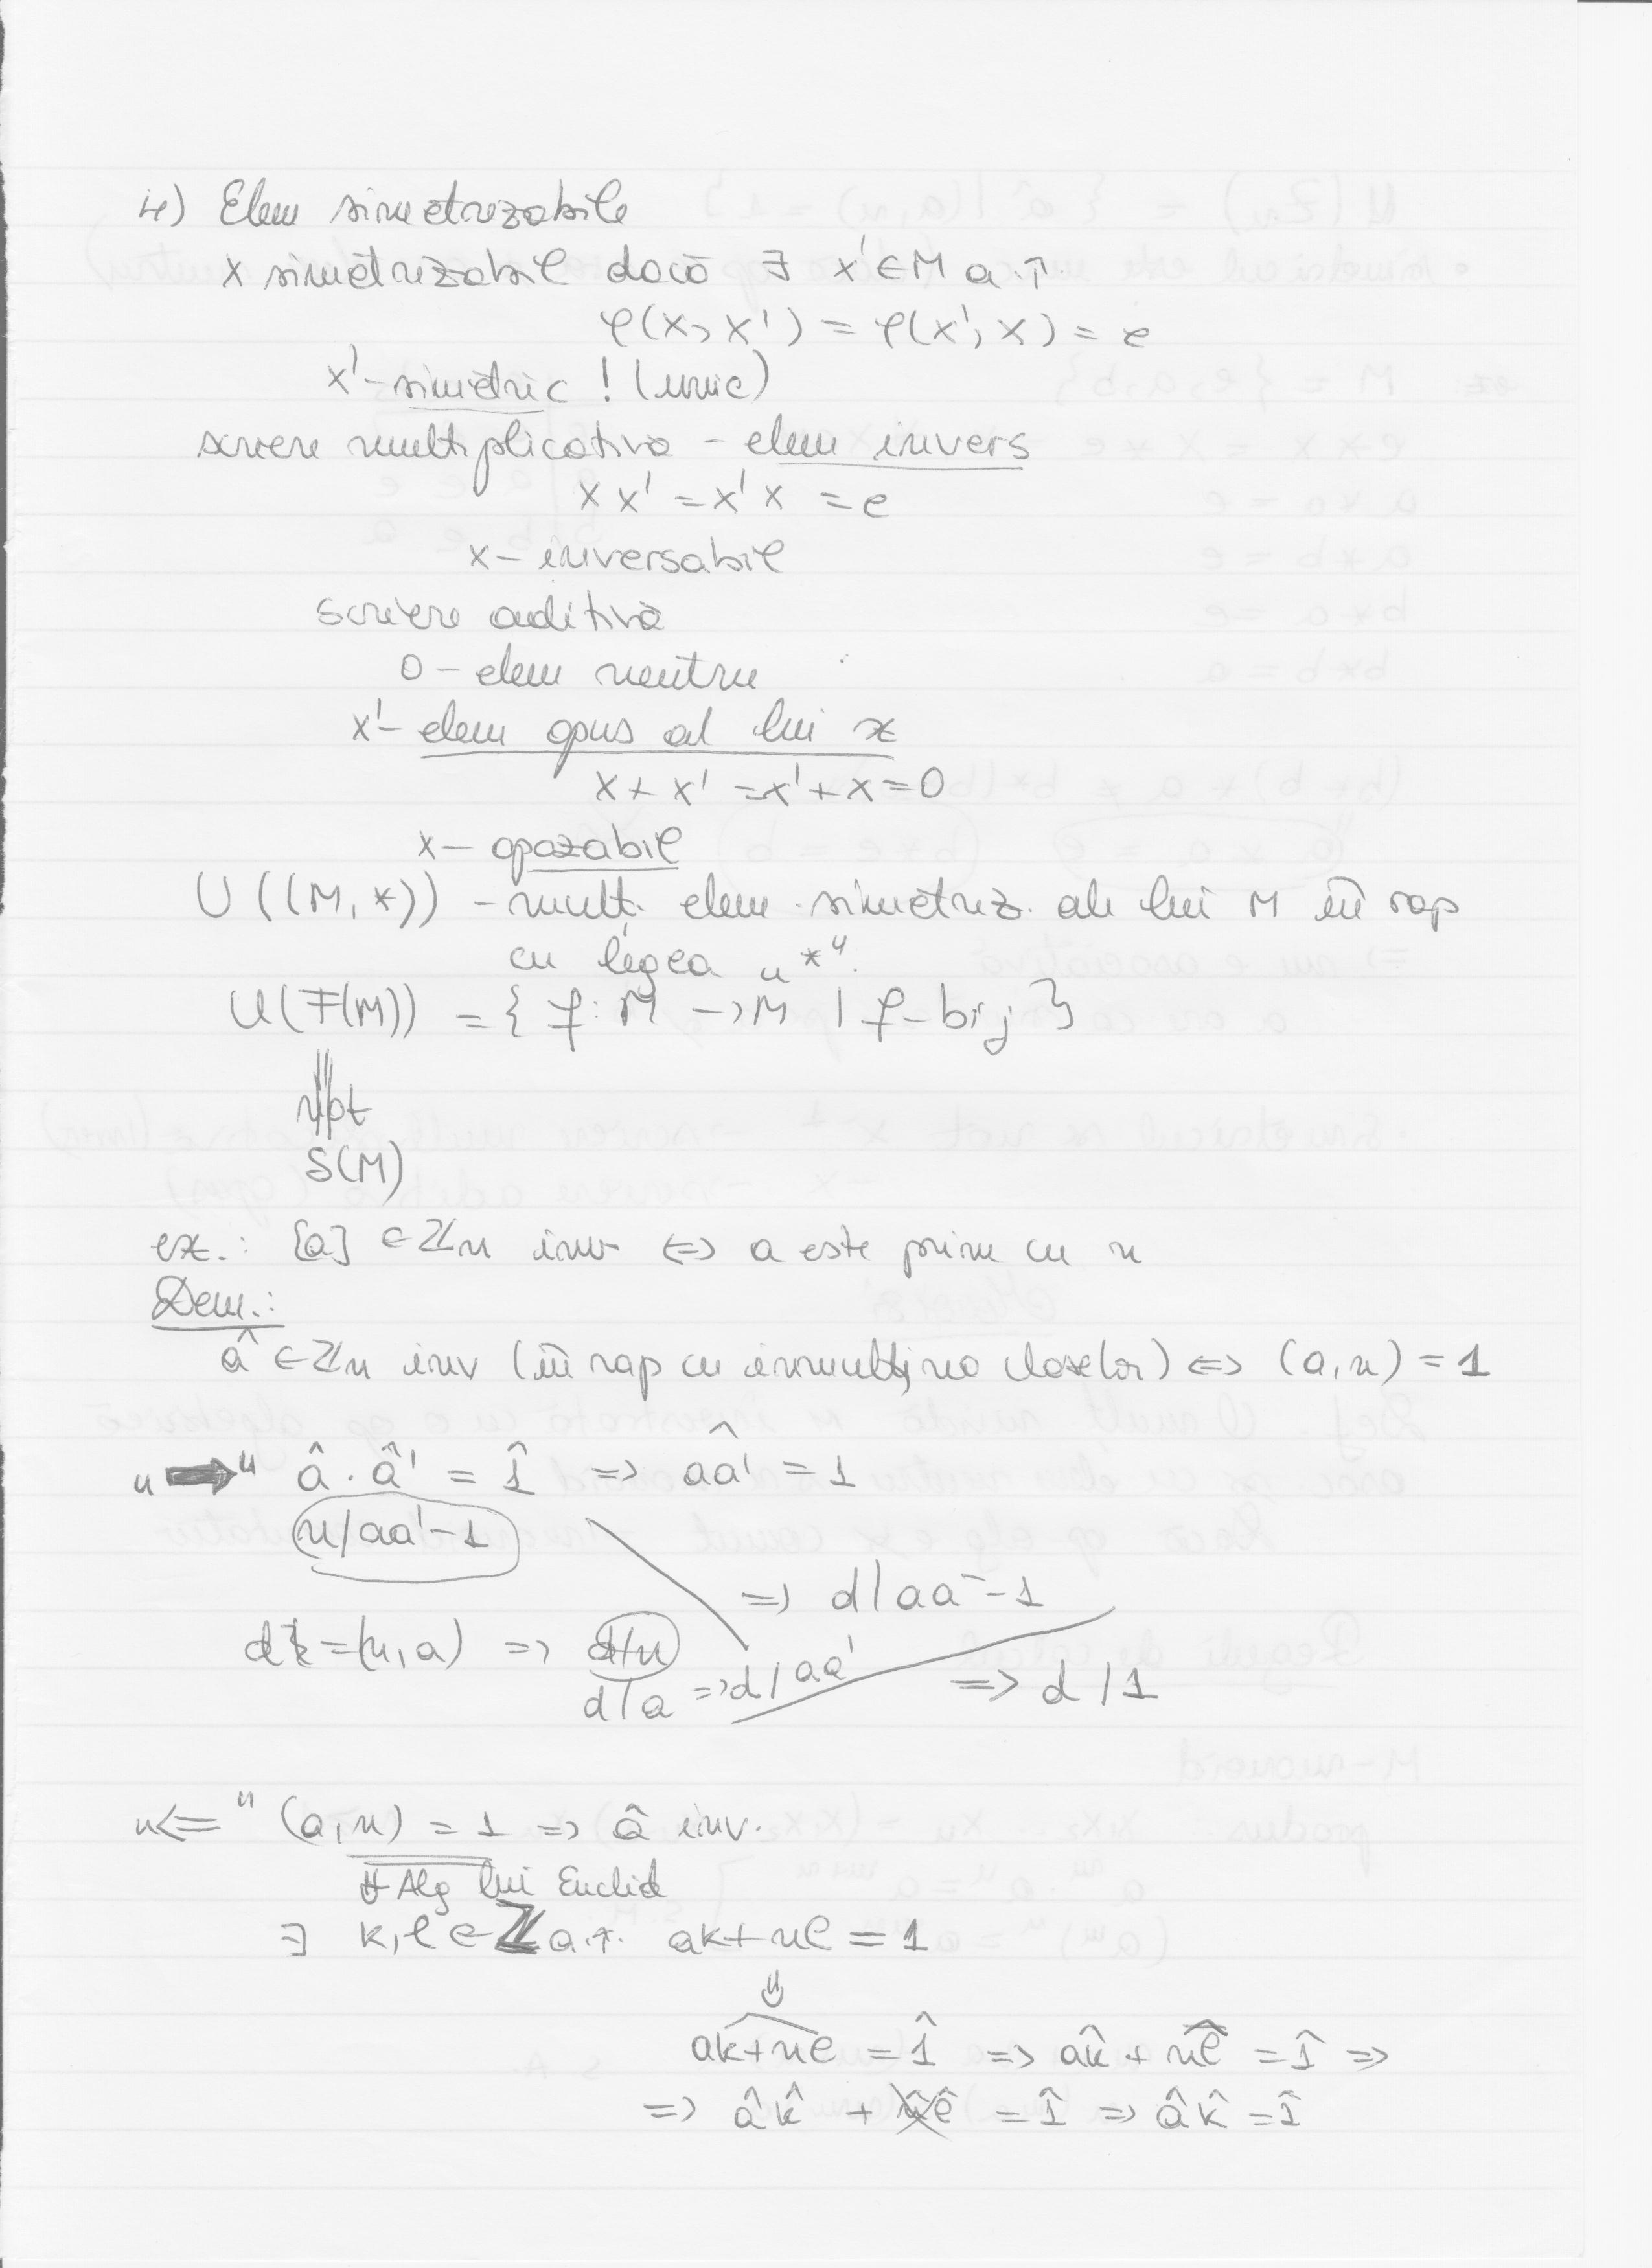 ie) Elem simetrizabile
x simetrizabil dacă ∃ x' ∈ M a.î.
φ(x, x') = φ(x', x) = e
x' - simetric ! (unic)
scriere multiplicativă - elem invers
x x' = x' x = e
x - inversabil
scriere aditivă
0 - elem neutru
x' - elem opus al lui x
x + x' = x' + x = 0
x - opozabil
U((M, *)) - mult. elem. simetriz. ale lui M în rap
cu legea „*"
U(F(M)) = { f: M → M | f - bij }
|| not
S(M)
ex.: [a] ∈ ℤn inv ⇔ a este prim cu n
Dem.:
â ∈ ℤn inv (în rap cu înmulțirea claselor) ⇔ (a, n) = 1
„⇒" â · â' = 1̂ ⇒ aa'^ = 1
n/aa' - 1
⇒ d | aa' - 1
d = (n, a) ⇒ d/n
d | a ⇒ d / aa' ⇒ d / 1
„⇐" (a, n) = 1 ⇒ â inv.
Alg lui Euclid
∃ k, l ∈ ℤ a.î. ak + nl = 1
⇓
ak+nl^ = 1̂ ⇒ ak^ + nl^ = 1̂ ⇒
⇒ â k̂ + n̂ l̂ = 1̂ ⇒ â k̂ = 1̂